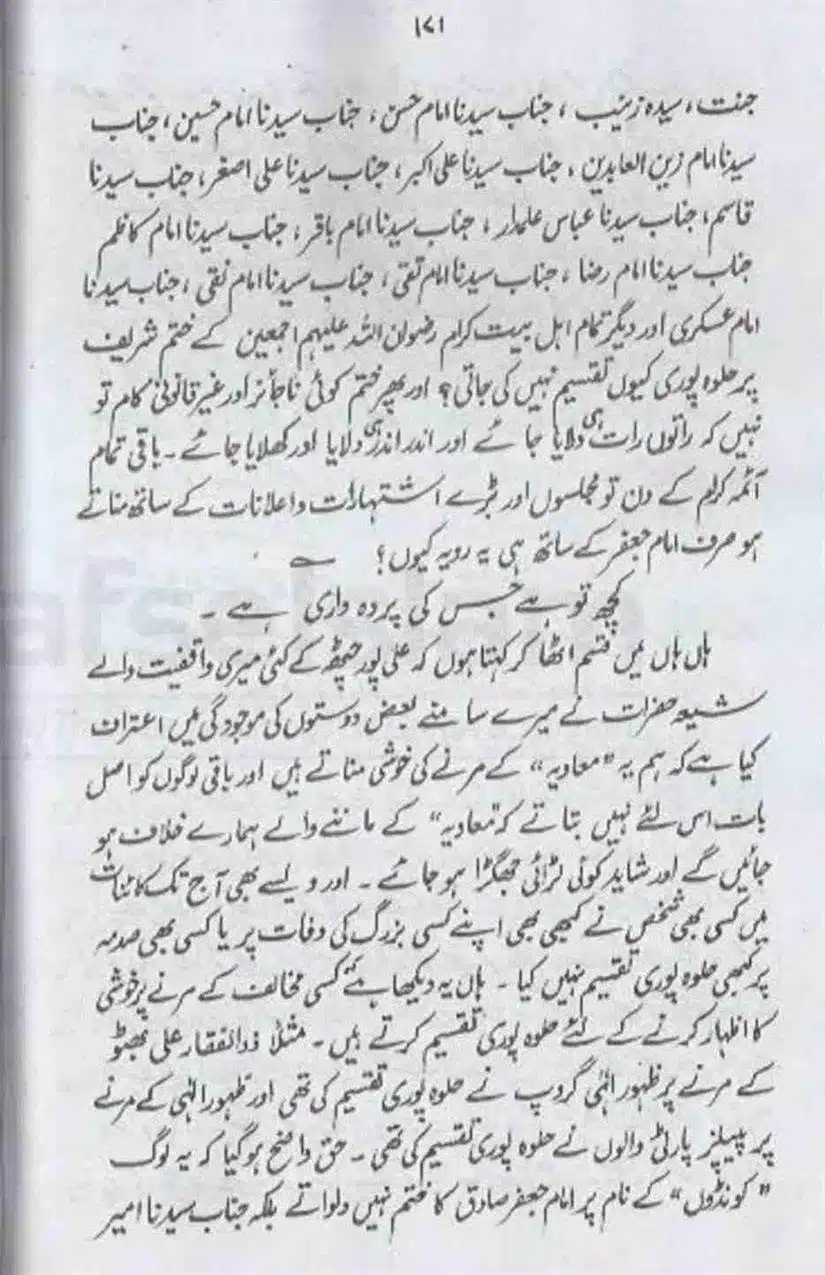 ۱۷۱
جنت، سیدہ زینب، جناب سیدنا امام حسن، جناب سیدنا امام حسین، جناب
سیدنا امام زین العابدین، جناب سیدنا علی اکبر، جناب سیدنا علی اصغر، جناب سیدنا
قاسم، جناب سیدنا عباس علمدار، جناب سیدنا امام باقر، جناب سیدنا امام کاظم
جناب سیدنا امام رضا، جناب سیدنا امام تقی، جناب سیدنا امام نقی، جناب سیدنا
امام عسکری اور دیگر تمام اہل بیت کرام رضوان اللہ علیہم اجمعین کے ختم شریف
پر حلوہ پوری کیوں تقسیم نہیں کی جاتی؟ اور پھر ختم کوئی ناجائز اور غیر قانونی کام تو
نہیں کہ راتوں رات ہی دلایا جائے اور اندر اندر ہی دلایا اور کھلایا جائے۔ باقی تمام
آئمہ کرام کے دن تو مجلسوں اور بڑے اشتہارات و اعلانات کے ساتھ مناتے
ہو صرف امام جعفر کے ساتھ ہی یہ رویہ کیوں؟ ؎
کچھ تو ہے جس کی پردہ داری ہے۔
ہاں ہاں میں قسم اٹھا کر کہتا ہوں کہ علی پور چٹھہ کے کئی میری واقفیت والے
شیعہ حضرات نے میرے سامنے بعض دوستوں کی موجودگی میں اعتراف
کیا ہے کہ ہم یہ "معاویہ" کے مرنے کی خوشی مناتے ہیں اور باقی لوگوں کو اصل
بات اس لئے نہیں بتاتے کہ "معاویہ" کے ماننے والے ہمارے خلاف ہو
جائیں گے اور شاید کوئی لڑائی جھگڑا ہو جائے۔ اور ویسے بھی آج تک کائنات
میں کسی بھی شخص نے کبھی بھی اپنے کسی بزرگ کی وفات پر یا کسی بھی صدمہ
پر کبھی حلوہ پوری تقسیم نہیں کیا۔ ہاں یہ دیکھا ہے کہ کسی مخالف کے مرنے پر خوشی
کا اظہار کرنے کے لئے حلوہ پوری تقسیم کرتے ہیں۔ مثلاً ذوالفقار علی بھٹو
کے مرنے پر ظہور الٰہی گروپ نے حلوہ پوری تقسیم کی تھی اور ظہور الٰہی کے مرنے
پر پیپلز پارٹی والوں نے حلوہ پوری تقسیم کی تھی۔ حق واضح ہو گیا کہ یہ لوگ
"کونڈوں" کے نام پر امام جعفر صادق کا ختم نہیں دلواتے بلکہ جناب سیدنا امیر